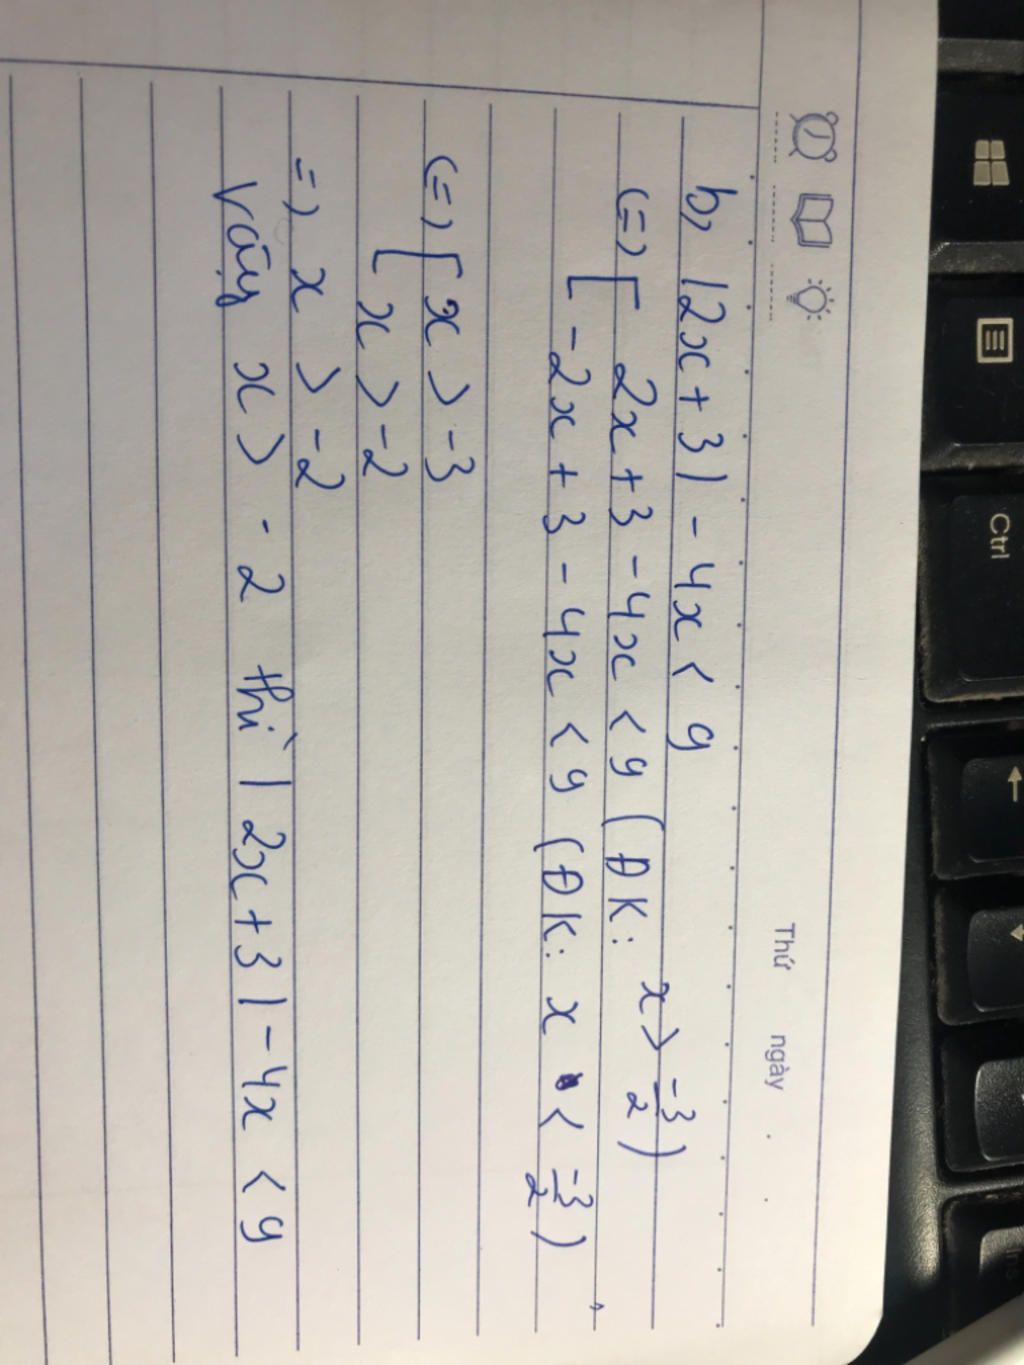 Thứ ngày
b) |2x+3| - 4x < 9
(=) [ 2x+3 - 4x < 9 (ĐK: x > -3/2)
[ -2x+3 - 4x < 9 (ĐK: x < -3/2)
(=) [ x > -3
[ x > -2
=) x > -2
Vậy x > -2 thì |2x+3| - 4x < 9
Ctrl
Ins